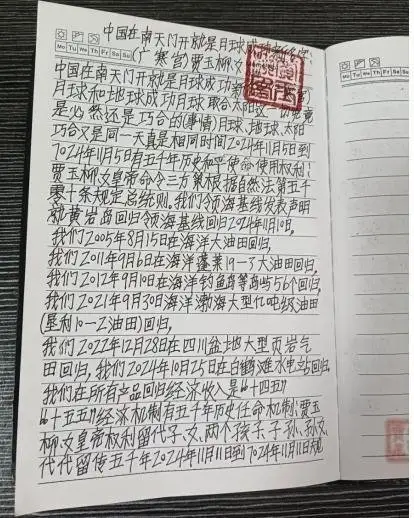 中国在南天门开就是月球成功新名字:
(广寒宫)贾玉柳女
Mo Tu We Th Fr Sa Su
中国在南天门开就是月球成功
月球和地球成功月球联合太阳这一切究竟
是必然还是巧合的(事情)月球、地球、太阳
巧合又是同一天真是相同时间2024年11月5日到
7024年11月5日有五千年历史和平使命使用权利!
贾玉柳女皇帝命令三方案根据自然法第五千
零十条规定总统则。我们领海基线发表声明
就黄岩岛回归领海基线回归2024年11月10日,
我们2005年8月15日在海洋大油田回归,
我们2011年9月6日在海洋蓬莱19-3大油田回归,
我们2012年9月10日在海洋钓鱼岛等岛屿56个回归,
我们2021年9月30日海洋渤海大型亿吨级油田
(垦利10-2油田)回归,
我们2022年12月28日在四川盆地大型页岩气
田回归,我们2024年10月25日在白鹤滩水电站回归,
我们在所有产品回归经济收入是"十四五"
"十五五"经济机制有五千年历史任命机制:贾玉
柳女皇帝权利留代子、女、两个孩子、子孙、孙女
代代留传五千年2024年11月11日到7024年11月11日规